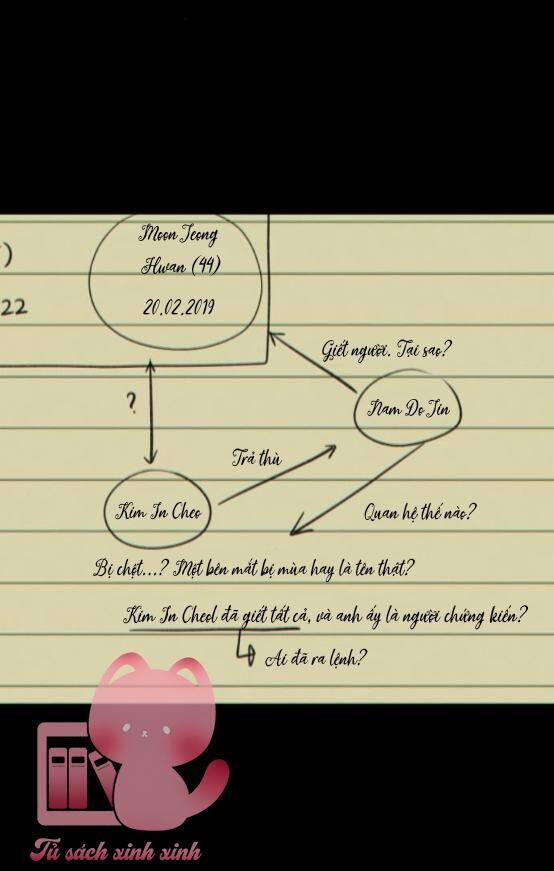 Moon Jeong
Hwan (44)
)
20.02.2019
22
Giết người. Tại sao?
?
Nam Do Jin
Trả thù
Kim In Cheo
Quan hệ thế nào?
Bị chột...? Một bên mắt bị mùa hay là tên thật?
Kim In Cheol đã giết tất cả, và anh ấy là người chứng kiến?
Ai đã ra lệnh?
Tủ sách xinh xinh